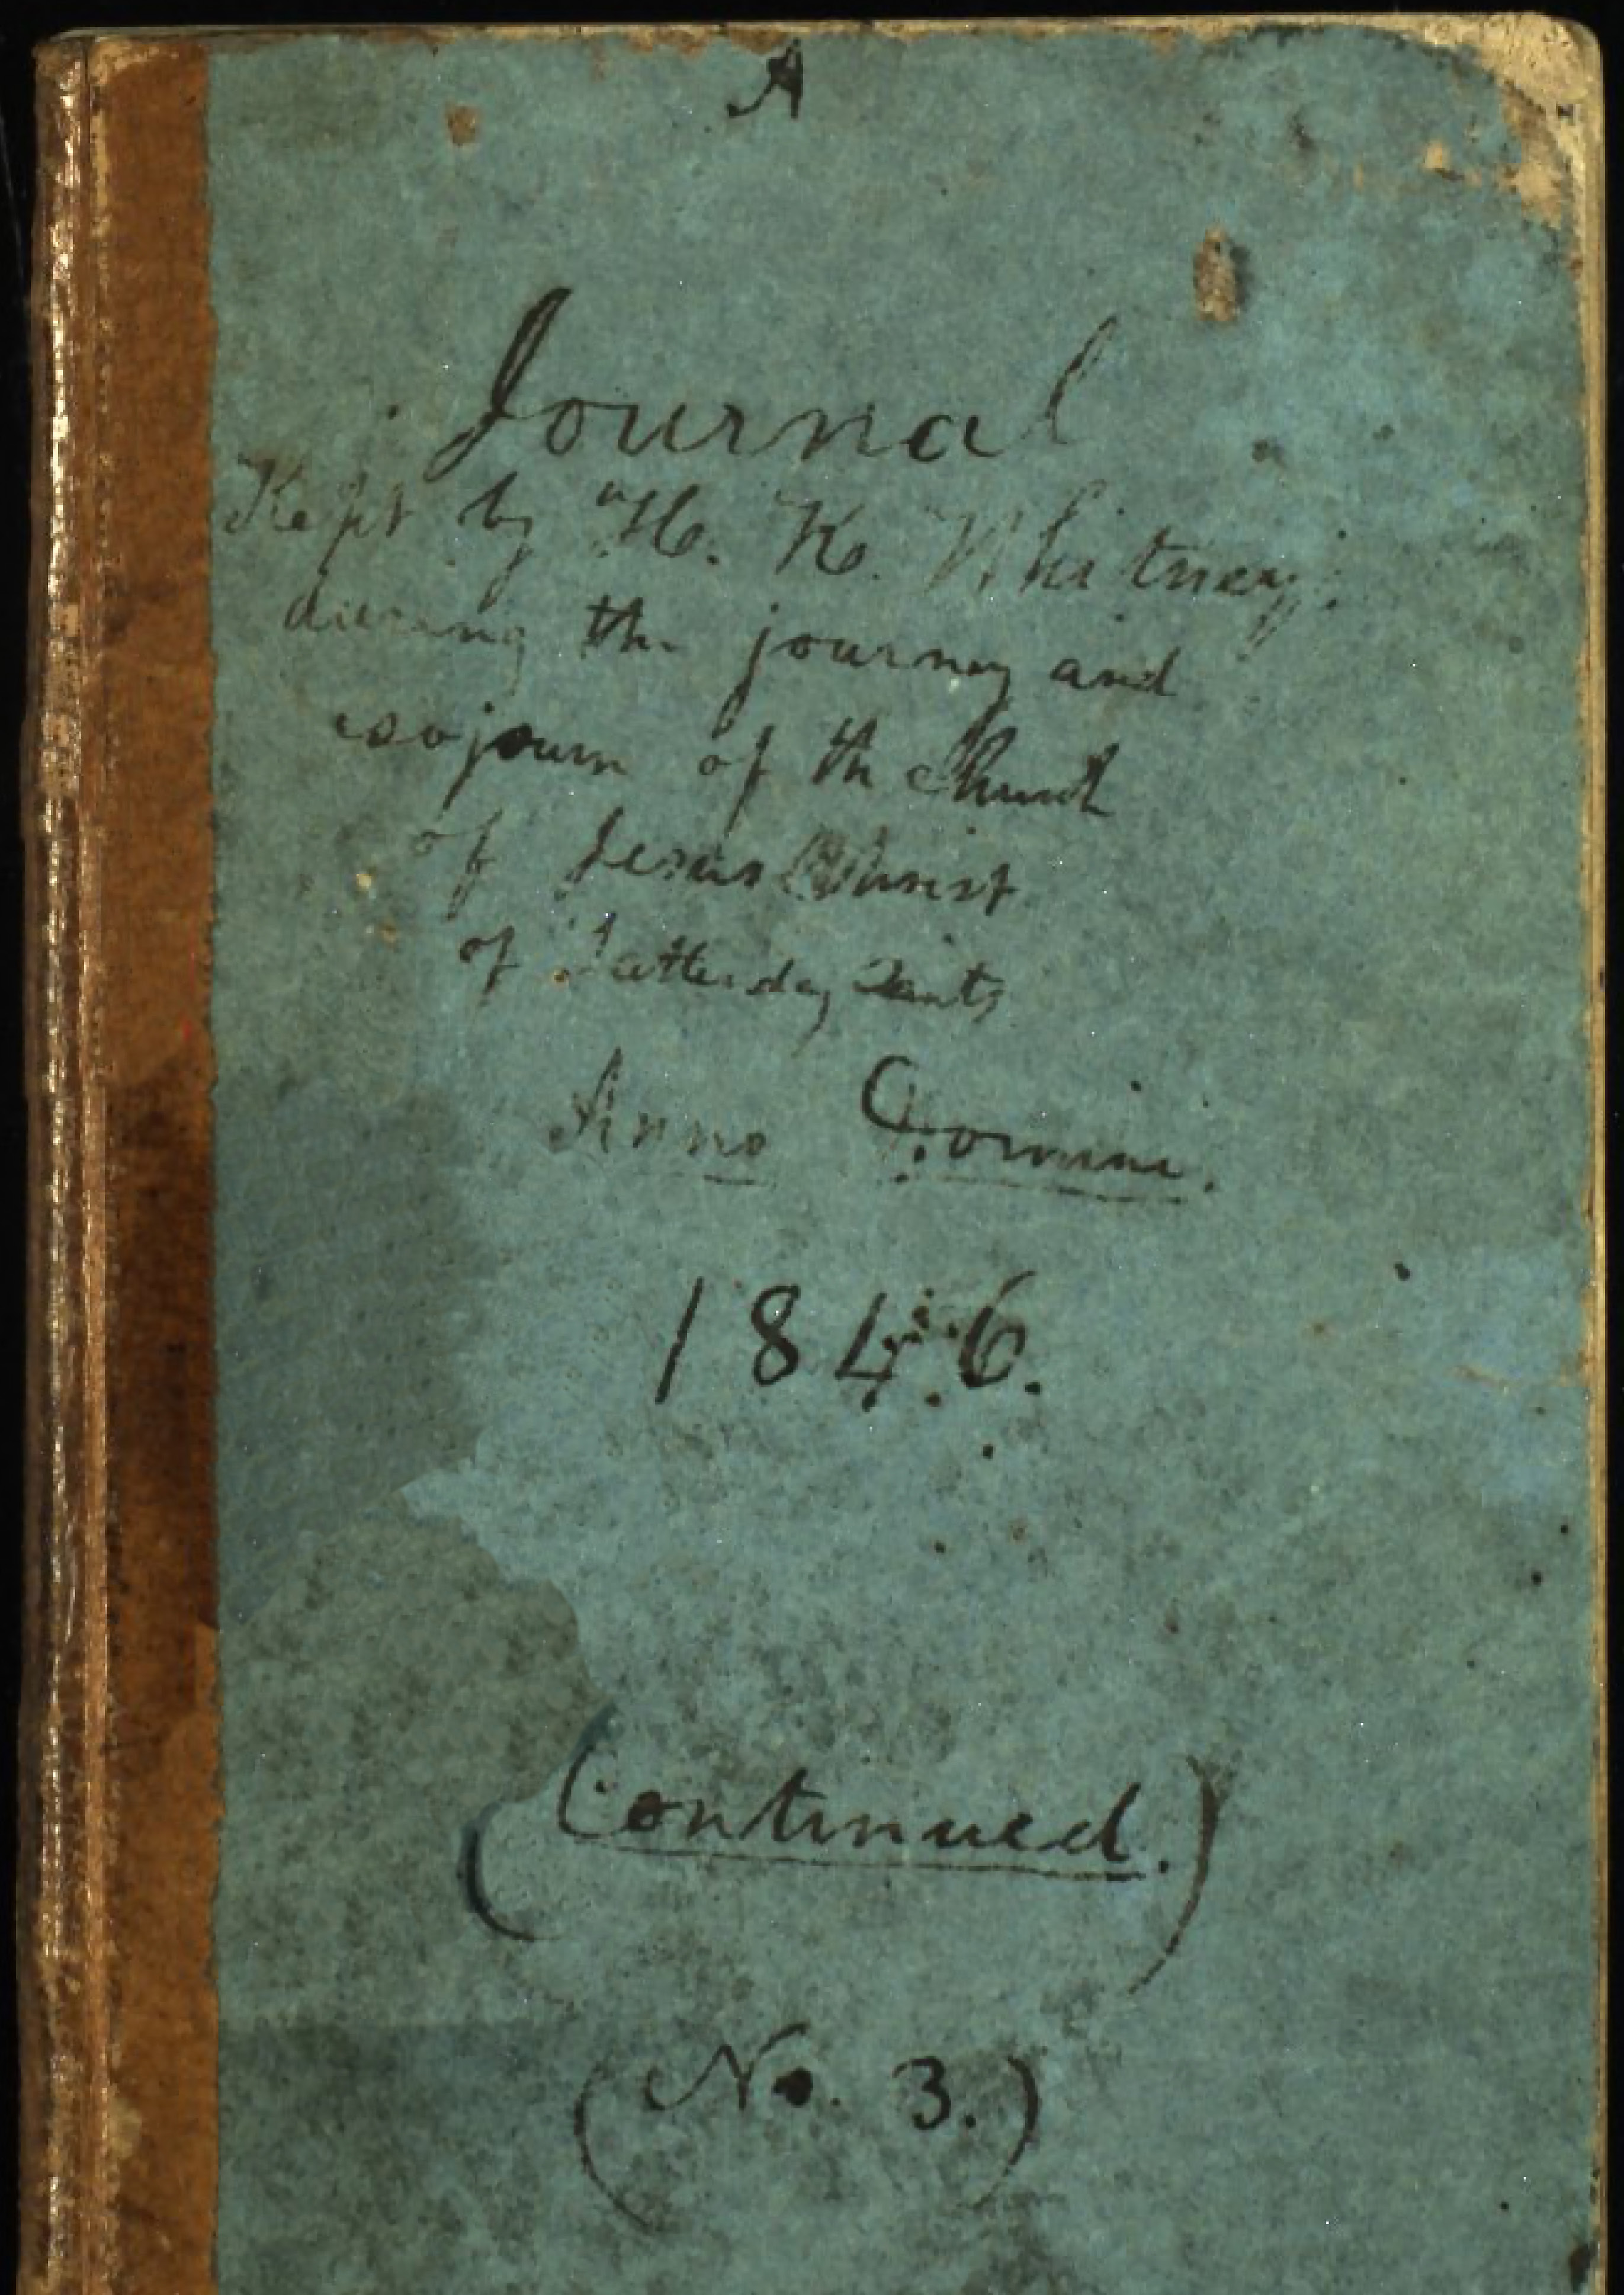 A
Journal
Kept by H. K. Whitney.
during the journey and
sojourn of th Church
of Jesus Christ
of Latterday Saints
Anno Domini.
1846.
(Continued.)
(No. 3.)